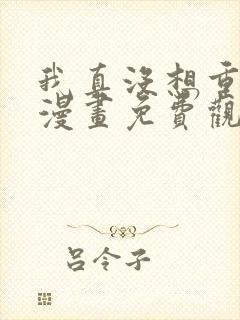 我真没想重
漫畫免費觀
呂令子